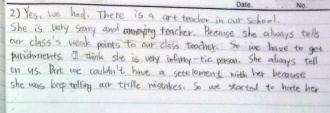 Date. No.
2) Yes, we had. There is a art teacher in our school.
She is very scary and annoying teacher. Because she always tells
our class's weak points to our class teacher. So we have to get
punishments. I think she is very infamy-tic person. She always tell
on us. But we couldn't have a setelement with her because
she was keep telling our trifle mistakes. So we started to hate her